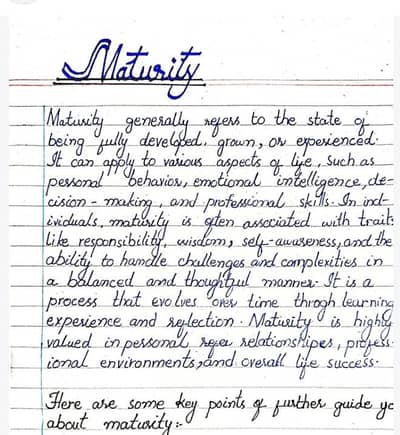 Maturity
Maturity generally refers to the state of
being fully developed, grown, or experienced.
It can apply to various aspects of life, such as
personal behavior, emotional intelligence, de-
cision-making, and professional skills. In ind-
ividuals, maturity is often associated with trait
like responsibility, wisdom, self-awareness, and the
ability to handle challenges and complexities in
a balanced and thoughtful manner. It is a
process that evolves over time throgh learning
experience and reflection. Maturity is highly
valued in personal relationshipes, profess-
ional environments, and overall life success.
Here are some key points of further guide yo
about maturity:-